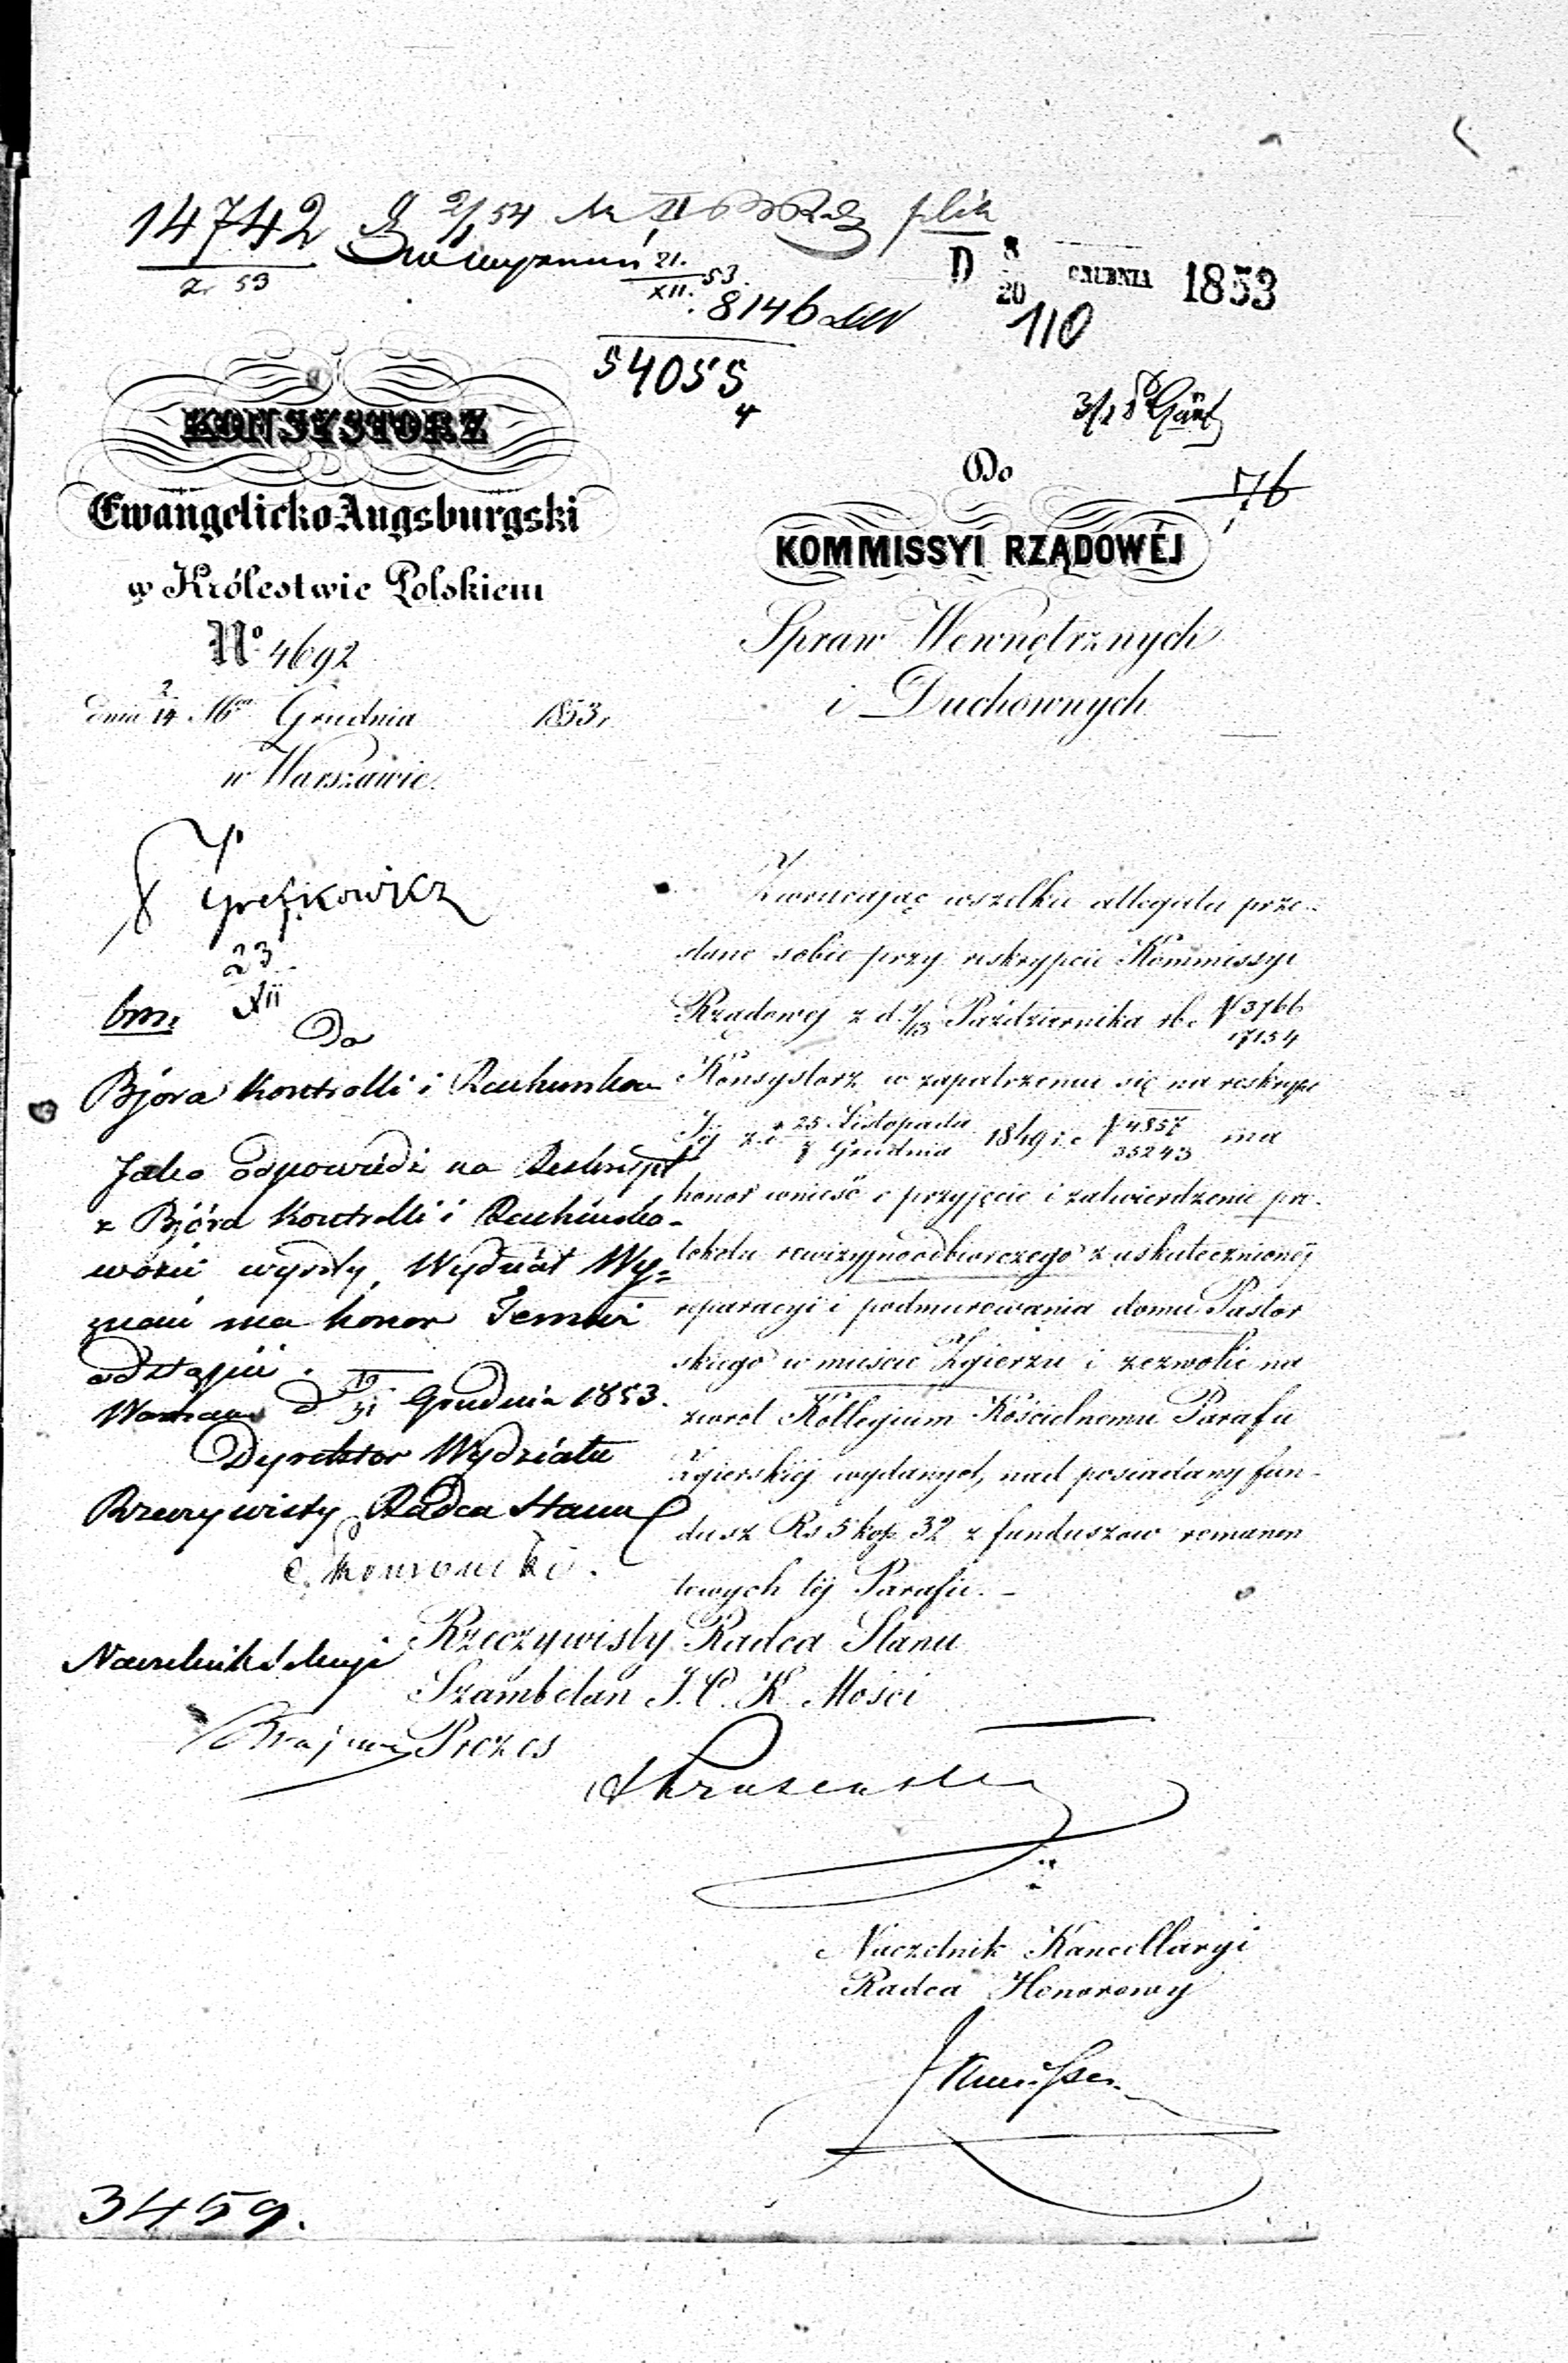 14742
z r 53
2/1 54 plik
21. XII. 53.
8146
54055
4
D 8/20 GRUDNIA 1853
110
76
KONSYSTORZ
Ewangelicko-Augsburgski
w Królestwie Polskiem
No 4692
dnia 2/14 Mca Grudnia 1853 r.
w Warszawie.
Do
KOMMISSYI RZĄDOWÉJ
Spraw Wewnętrznych
i Duchownych
23
XII
bm:
Do
Bjóra Kontrolli i Rachunków
Jako odpowiedź na Reskrypt
z Bjóra Kontrolli i Rachunko-
wości wyszły, Wydział Wy=
znań ma honor Temuż
odstąpić.
Warszawa d 19/31 Grudnia 1853.
Dyrektor Wydziału
Rzeczywisty Radca Stanu
Naczelnik Sekcyi
Zwracając wszelkie allegata prze-
słane sobie przy reskrypcie Kommissyi
Rządowej z d. 1/13 Października rb. N 3766/17154
Konsystorz w zapatrzeniu się na reskrypt
Jéj z d. 25 Listopada/7 Grudnia 1849 r. N 4857/35243 ma
honor wnieść o przyjęcie i zatwierdzenie pro-
tokółu rewizyjno odbiorczego z uskutecznionéj
reparacyi i podmurowania domu Pastor
skiego w mieście Zgierzu i zezwolić na
zwrot Kollegium Kościelnemu Parafii
Zgierskiéj wydanych, nad posiadany fun-
dusz Rs 5 kop. 32 z funduszów remanen
towych téj Parafii. –
Rzeczywisty Radca Stanu
Szambelan J. C. K. Mości
Prezes
Naczelnik Kancellaryi
Radca Honorowy
3459.